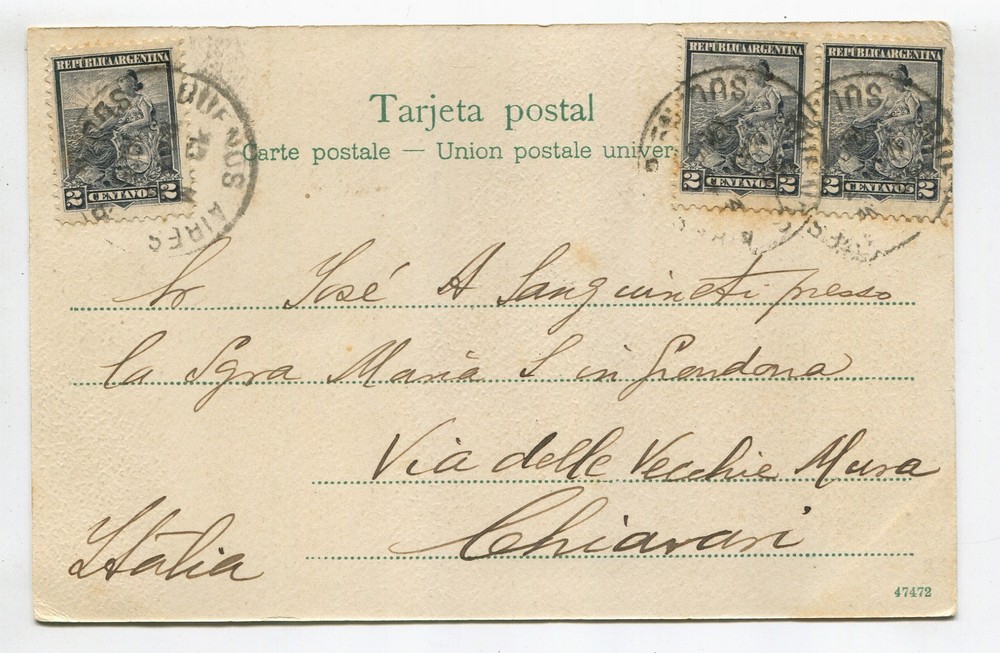 REPUBLICA ARGENTINA
2 CENTAVOS 2
REPUBLICA ARGENTINA
2 CENTAVOS 2
REPUBLICA ARGENTINA
2 CENTAVOS 2
BUENOS AIRES
Tarjeta postal
Carte postale — Union postale univer
Sr José A Sanguineti presso
la Sgra Maria S in Grondona
Via delle Vecchie Mura
Chiavari
Itàlia
47472